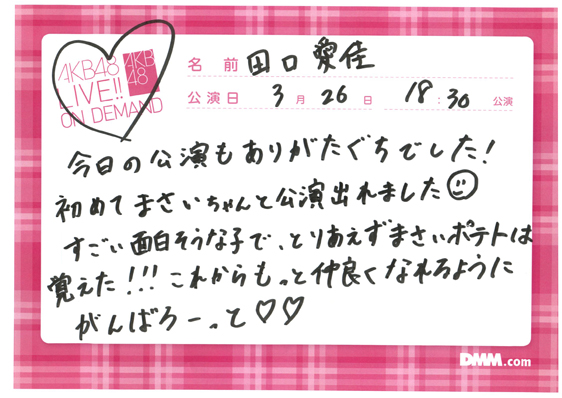 AKB48
LIVE!!
ON DEMAND
AKB
48
名 前 田口愛佳
公演日 3月 26日 18:30 公演
今日の公演もありがたぐちでした!
初めてまさいちゃんと公演出れました
すごい面白そうな子で、とりあえずまさいポテトは
覚えた!!! これからもっと仲良くなれるように
がんばろーっと♡♡
DMM.com